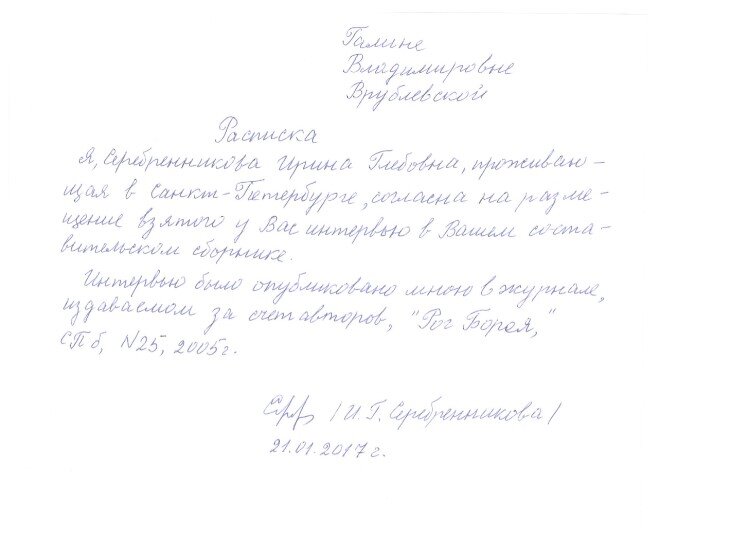 Галине
Владимировне
Врублевской
Расписка
Я, Серебренникова Ирина Глебовна, проживаю-
щая в Санкт-Петербурге, согласна на разме-
щение взятого у Вас интервью в Вашем соста-
вительском сборнике.
Интервью было опубликовано мною в журнале,
издаваемом за счет авторов, "Рог Борея,"
СПб, N25, 2005г.
/И.Г. Серебренникова/
21.01.2017 г.